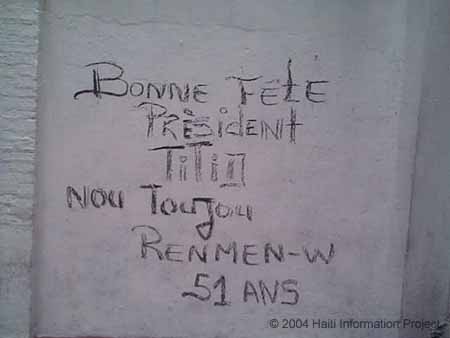 BONNE FÉTE
PRÈSIDENT
TITID
NOU TOUJOU
RENMEN-W
51 ANS
© 2004 Haiti Information Project